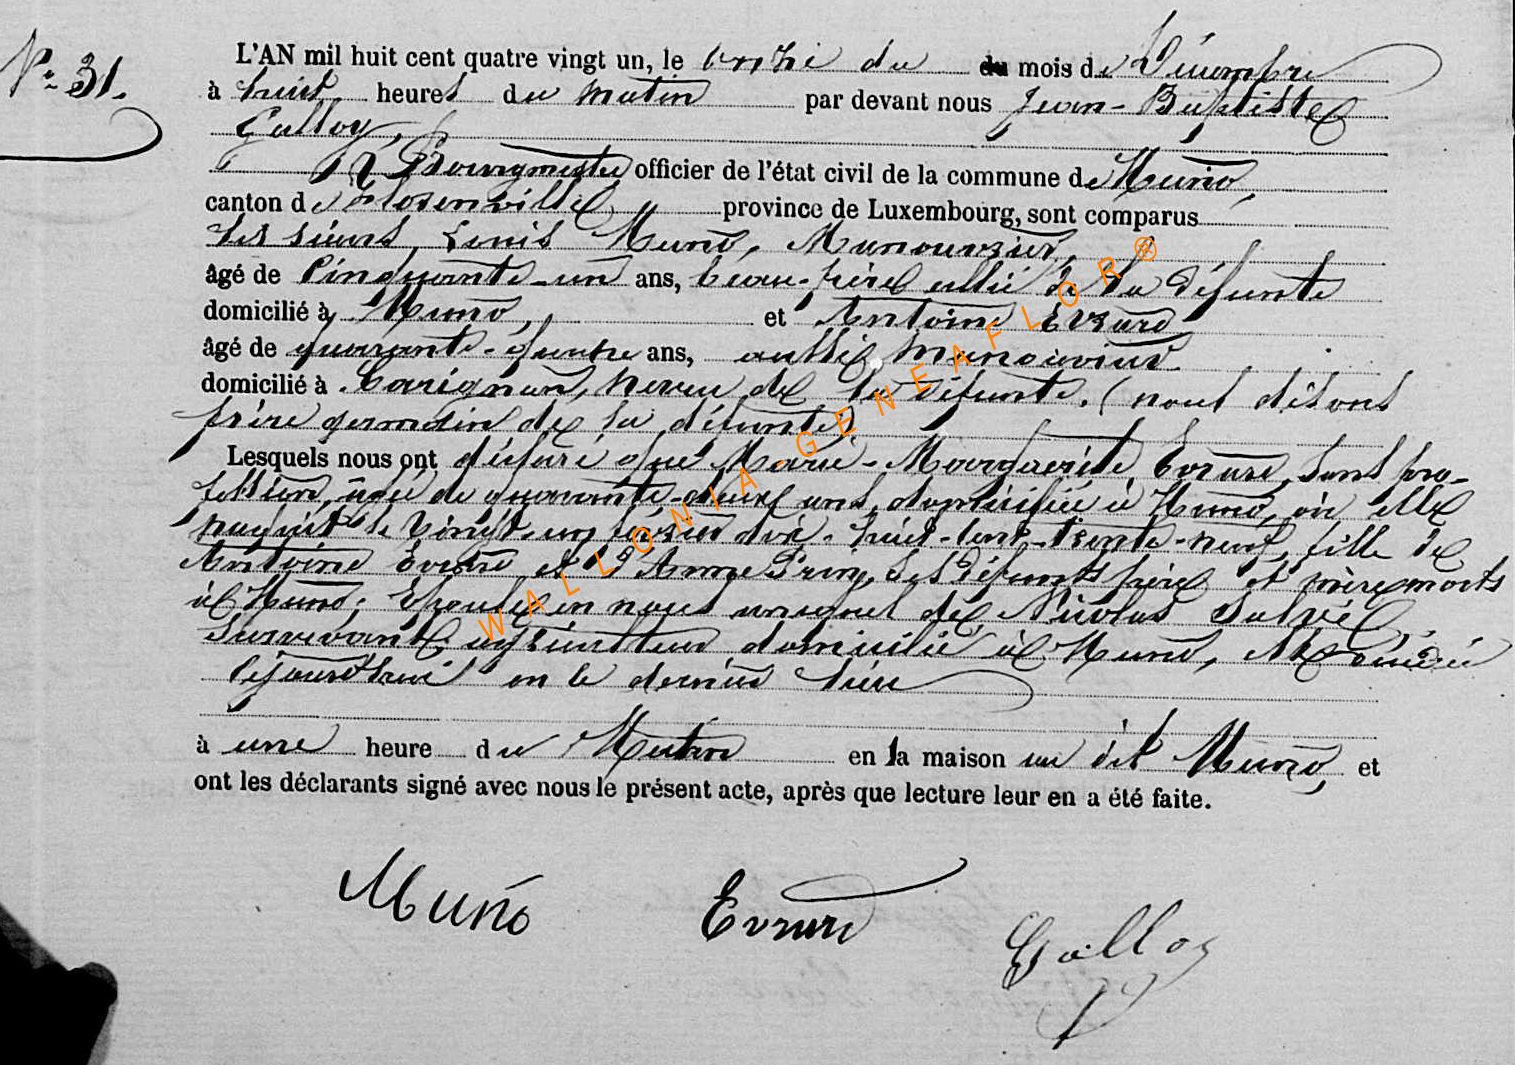 N° 31.
L'AN mil huit cent quatre vingt un, le onze du du mois de Décembre
à huit heures du matin par devant nous Jean-Baptiste
Galloy,
Bourgmestre officier de l'état civil de la commune de Muno,
canton de Florenville province de Luxembourg, sont comparus
les sieurs Louis Muno, Manouvrier,
âgé de Cinquante-un ans, beau-frère allié de la défunte
domicilié à Muno, et Antoine Evrard
âgé de quarante-quatre ans, aussi manouvrier
domicilié à Carignan, neveu de la défunte. (nous disons
frère germain de la défunte)
Lesquels nous ont déclaré que Marie-Marguerite Evrard, sans pro-
fession, âgée de quarante-deux ans, domiciliée à Muno, où elle
naquit le vingt-un février dix-huit-cent-trente-neuf, fille de
Antoine Evrard et d'Anne Prin, ses défunts père et mère morts
à Muno; Epouse en de Nicolas
survivant, domicilié à Muno, est décédée
cejourd'hui en ce dernier lieu
à une heure du Matin en la maison au dit Muno, et
ont les déclarants signé avec nous le présent acte, après que lecture leur en a été faite.
Muno Evrard Galloy
WALLONIA-GENEAFLOR®